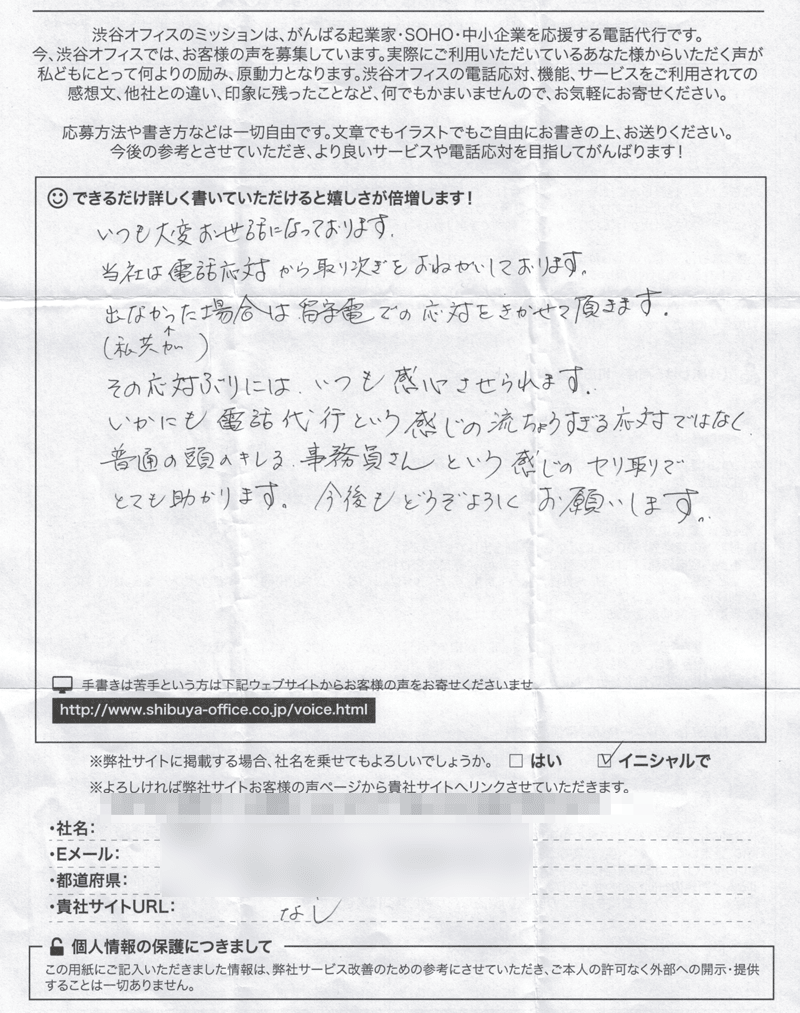 渋谷オフィスのミッションは、がんばる起業家・SOHO・中小企業を応援する電話代行です。
今、渋谷オフィスでは、お客様の声を募集しています。実際にご利用いただいているあなた様からいただく声が
私どもにとって何よりの励み、原動力となります。渋谷オフィスの電話応対、機能、サービスをご利用されての
感想文、他社との違い、印象に残ったことなど、何でもかまいませんので、お気軽にお寄せください。
応募方法や書き方などは一切自由です。文章でもイラストでもご自由にお書きの上、お送りください。
今後の参考とさせていただき、より良いサービスや電話応対を目指してがんばります!
できるだけ詳しく書いていただけると嬉しさが倍増します!
いつも大変お世話になっております。
当社は電話応対から取り次ぎをおねがいしております。
出なかった場合は留守電での応対をきかせて頂きます。
(私共が)
その応対ぶりには、いつも感心させられます。
いかにも電話代行という感じの流ちょうすぎる応対ではなく
普通の頭のキレる、事務員さんという感じのヤリ取りで
とても助かります。今後もどうぞよろしくお願いします。
手書きは苦手という方は下記ウェブサイトからお客様の声をお寄せくださいませ
http://www.shibuya-office.co.jp/voice.html
※弊社サイトに掲載する場合、社名を乗せてもよろしいでしょうか。 □ はい ☑ イニシャルで
※よろしければ弊社サイトお客様の声ページから貴社サイトへリンクさせていただきます。
・社名:
・Eメール:
・都道府県:
・貴社サイトURL: なし
個人情報の保護につきまして
この用紙にご記入いただきました情報は、弊社サービス改善のための参考にさせていただき、ご本人の許可なく外部への開示・提供
することは一切ありません。